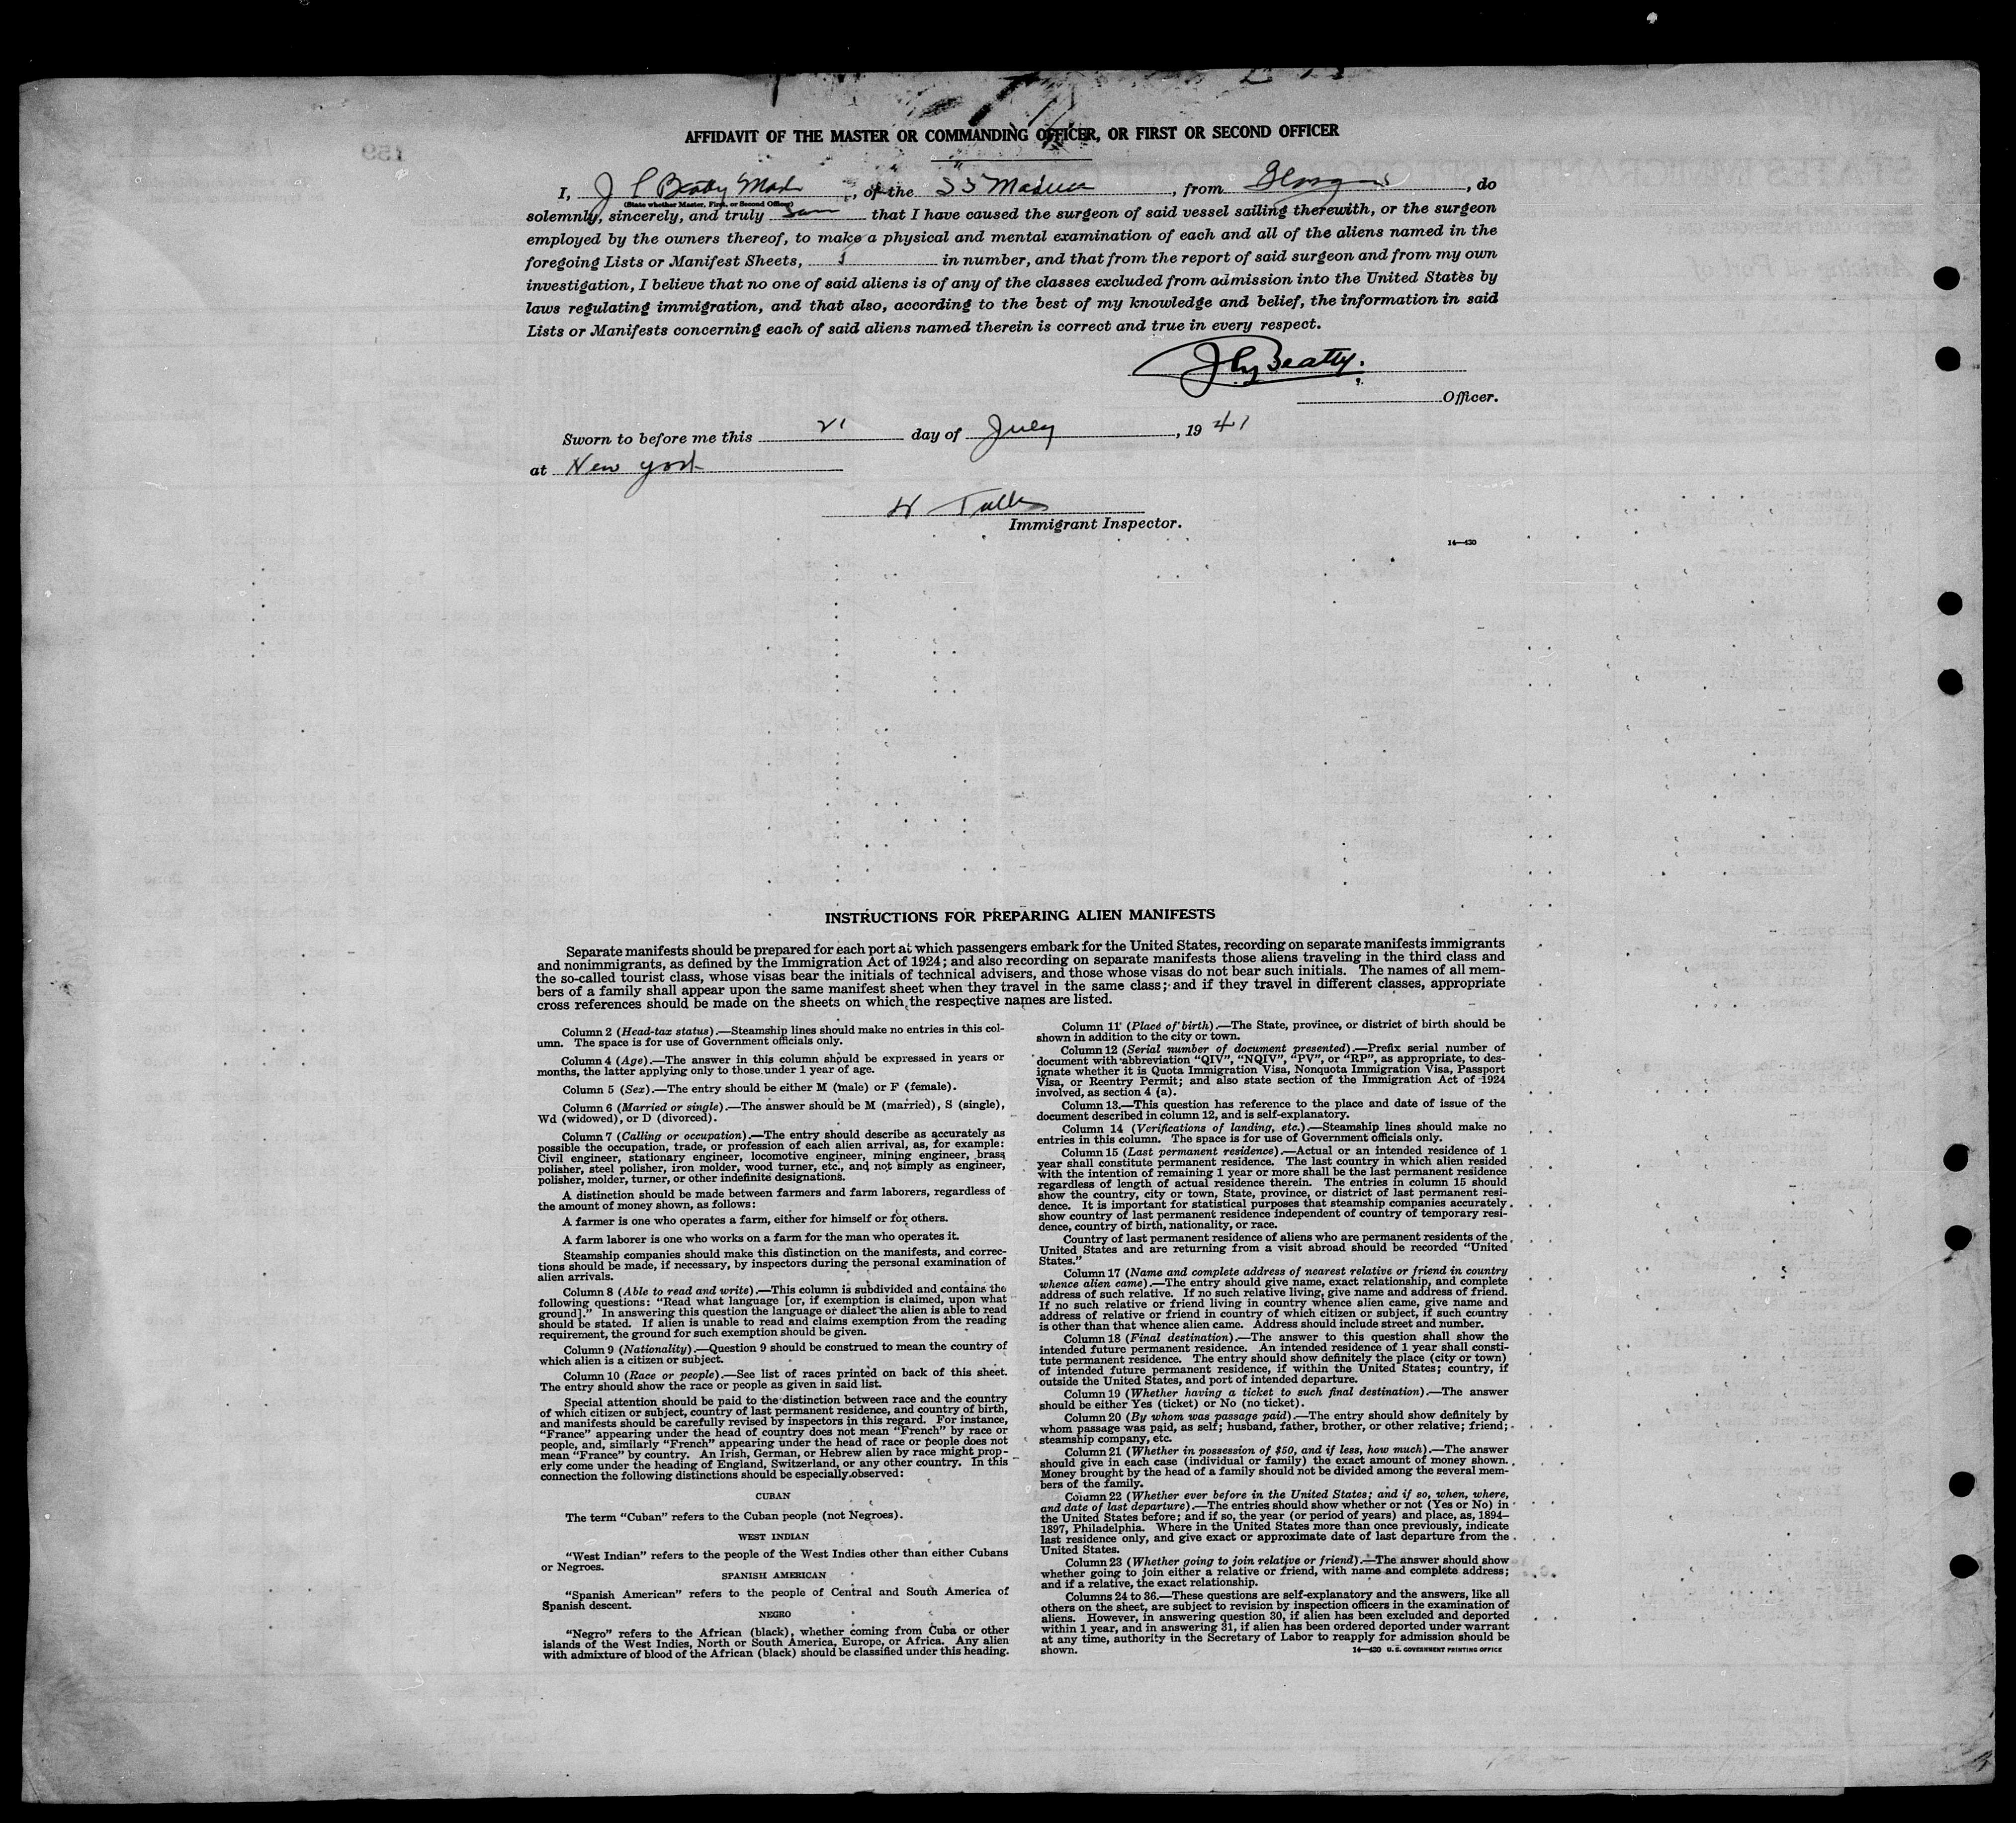 159
AFFIDAVIT OF THE MASTER OR COMMANDING OFFICER, OR FIRST OR SECOND OFFICER
I, J Beatty, of the SS, from, do
(State whether Master, First, or Second Officer)
solemnly, sincerely, and truly that I have caused the surgeon of said vessel sailing therewith, or the surgeon
employed by the owners thereof, to make a physical and mental examination of each and all of the aliens named in the
foregoing Lists or Manifest Sheets, in number, and that from the report of said surgeon and from my own
investigation, I believe that no one of said aliens is of any of the classes excluded from admission into the United States by
laws regulating immigration, and that also, according to the best of my knowledge and belief, the information in said
Lists or Manifests concerning each of said aliens named therein is correct and true in every respect.
Beatty.
Officer.
Sworn to before me this 21 day of July, 1941
at New York
Immigrant Inspector.
14—430
INSTRUCTIONS FOR PREPARING ALIEN MANIFESTS
Separate manifests should be prepared for each port at which passengers embark for the United States, recording on separate manifests immigrants
and nonimmigrants, as defined by the Immigration Act of 1924; and also recording on separate manifests those aliens traveling in the third class and
the so-called tourist class, whose visas bear the initials of technical advisers, and those whose visas do not bear such initials. The names of all mem-
bers of a family shall appear upon the same manifest sheet when they travel in the same class; and if they travel in different classes, appropriate
cross references should be made on the sheets on which the respective names are listed.
Column 2 (Head-tax status).—Steamship lines should make no entries in this col-
umn. The space is for use of Government officials only.
Column 4 (Age).—The answer in this column should be expressed in years or
months, the latter applying only to those under 1 year of age.
Column 5 (Sex).—The entry should be either M (male) or F (female).
Column 6 (Married or single).—The answer should be M (married), S (single),
Wd (widowed), or D (divorced).
Column 7 (Calling or occupation).—The entry should describe as accurately as
possible the occupation, trade, or profession of each alien arrival, as, for example:
Civil engineer, stationary engineer, locomotive engineer, mining engineer, brass
polisher, steel polisher, iron molder, wood turner, etc., and not simply as engineer,
polisher, molder, turner, or other indefinite designations.
A distinction should be made between farmers and farm laborers, regardless of
the amount of money shown, as follows:
A farmer is one who operates a farm, either for himself or for others.
A farm laborer is one who works on a farm for the man who operates it.
Steamship companies should make this distinction on the manifests, and correc-
tions should be made, if necessary, by inspectors during the personal examination of
alien arrivals.
Column 8 (Able to read and write).—This column is subdivided and contains the
following questions: "Read what language [or, if exemption is claimed, upon what
ground]." In answering this question the language or dialect the alien is able to read
should be stated. If alien is unable to read and claims exemption from the reading
requirement, the ground for such exemption should be given.
Column 9 (Nationality).—Question 9 should be construed to mean the country of
which alien is a citizen or subject.
Column 10 (Race or people).—See list of races printed on back of this sheet.
The entry should show the race or people as given in said list.
Special attention should be paid to the distinction between race and the country
of which citizen or subject, country of last permanent residence, and country of birth,
and manifests should be carefully revised by inspectors in this regard. For instance,
"France" appearing under the head of country does not mean "French" by race or
people, and, similarly "French" appearing under the head of race or people does not
mean "France" by country. An Irish, German, or Hebrew alien by race might prop-
erly come under the heading of England, Switzerland, or any other country. In this
connection the following distinctions should be especially observed:
CUBAN
The term "Cuban" refers to the Cuban people (not Negroes).
WEST INDIAN
"West Indian" refers to the people of the West Indies other than either Cubans
or Negroes.
SPANISH AMERICAN
"Spanish American" refers to the people of Central and South America of
Spanish descent.
NEGRO
"Negro" refers to the African (black), whether coming from Cuba or other
islands of the West Indies, North or South America, Europe, or Africa. Any alien
with admixture of blood of the African (black) should be classified under this heading.
Column 11 (Place of birth).—The State, province, or district of birth should be
shown in addition to the city or town.
Column 12 (Serial number of document presented).—Prefix serial number of
document with abbreviation "QIV", "NQIV", "PV", or "RP", as appropriate, to des-
ignate whether it is Quota Immigration Visa, Nonquota Immigration Visa, Passport
Visa, or Reentry Permit; and also state section of the Immigration Act of 1924
involved, as section 4 (a).
Column 13.—This question has reference to the place and date of issue of the
document described in column 12, and is self-explanatory.
Column 14 (Verifications of landing, etc.).—Steamship lines should make no
entries in this column. The space is for use of Government officials only.
Column 15 (Last permanent residence).—Actual or an intended residence of 1
year shall constitute permanent residence. The last country in which alien resided
with the intention of remaining 1 year or more shall be the last permanent residence
regardless of length of actual residence therein. The entries in column 15 should
show the country, city or town, State, province, or district of last permanent resi-
dence. It is important for statistical purposes that steamship companies accurately
show country of last permanent residence independent of country of temporary resi-
dence, country of birth, nationality, or race.
Country of last permanent residence of aliens who are permanent residents of the
United States and are returning from a visit abroad should be recorded "United
States."
Column 17 (Name and complete address of nearest relative or friend in country
whence alien came).—The entry should give name, exact relationship, and complete
address of such relative. If no such relative living, give name and address of friend.
If no such relative or friend living in country whence alien came, give name and
address of relative or friend in country of which citizen or subject, if such country
is other than that whence alien came. Address should include street and number.
Column 18 (Final destination).—The answer to this question shall show the
intended future permanent residence. An intended residence of 1 year shall consti-
tute permanent residence. The entry should show definitely the place (city or town)
of intended future permanent residence, if within the United States; country, if
outside the United States, and port of intended departure.
Column 19 (Whether having a ticket to such final destination).—The answer
should be either Yes (ticket) or No (no ticket).
Column 20 (By whom was passage paid).—The entry should show definitely by
whom passage was paid, as self; husband, father, brother, or other relative; friend;
steamship company, etc.
Column 21 (Whether in possession of $50, and if less, how much).—The answer
should give in each case (individual or family) the exact amount of money shown.
Money brought by the head of a family should not be divided among the several mem-
bers of the family.
Column 22 (Whether ever before in the United States; and if so, when, where,
and date of last departure).—The entries should show whether or not (Yes or No) in
the United States before; and if so, the year (or period of years) and place, as, 1894–
1897, Philadelphia. Where in the United States more than once previously, indicate
last residence only, and give exact or approximate date of last departure from the
United States.
Column 23 (Whether going to join relative or friend).—The answer should show
whether going to join either a relative or friend, with name and complete address;
and if a relative, the exact relationship.
Columns 24 to 36.—These questions are self-explanatory and the answers, like all
others on the sheet, are subject to revision by inspection officers in the examination of
aliens. However, in answering question 30, if alien has been excluded and deported
within 1 year, and in answering 31, if alien has been ordered deported under warrant
at any time, authority in the Secretary of Labor to reapply for admission should be
shown.
14—430 U. S. GOVERNMENT PRINTING OFFICE